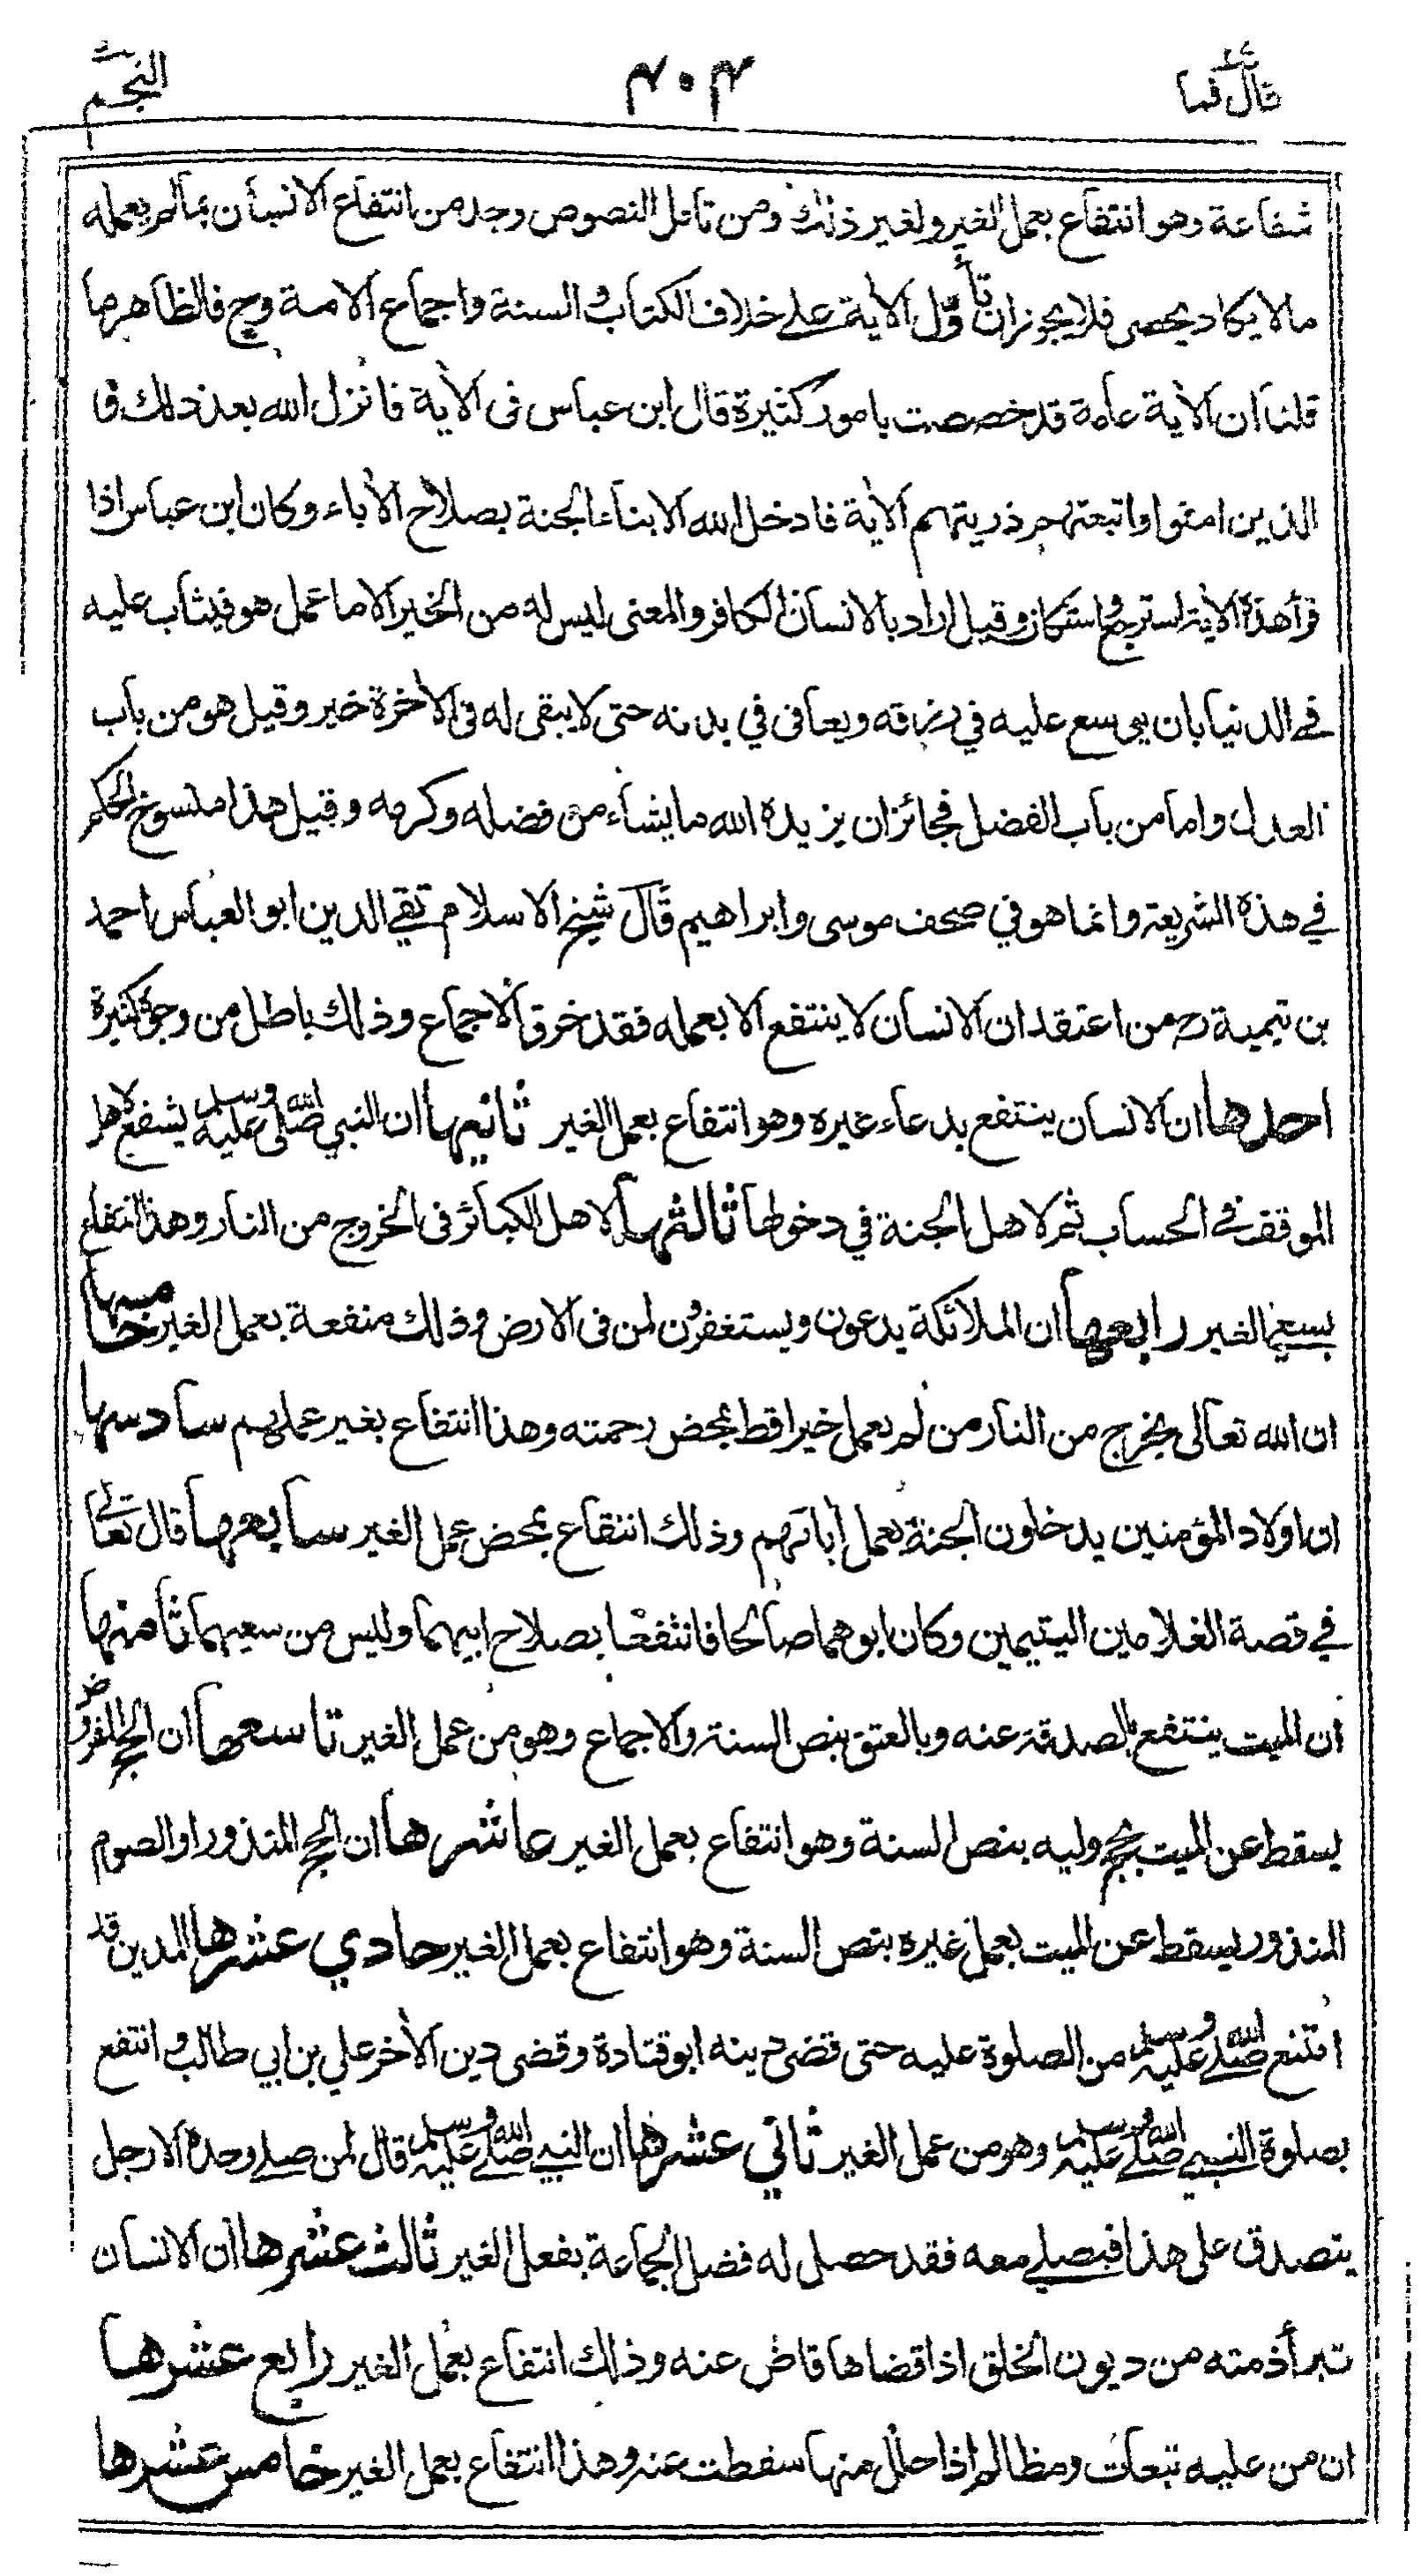 قال فما ٤٠٤ النجم
شفاعة وهو انتفاع بعمل الغير ولغير ذلك ومن تأمل النصوص وجد من انتفاع الانسان بمالم يعمله
مالا يكاد يحصى فلا يجوز ان تأول الأية على خلاف الكتاب والسنة واجماع الامة وح فالظاهر ما
قلنا ان الأية عامة قد خصصت بامور كثيرة قال ابن عباس فى الأية فانزل الله بعد ذلك و
الذين امنوا واتبعتهم ذريتهم الأية فادخل الله الابناء الجنة بصلاح الأباء وكان ابن عباس اذا
قرأ هذه الأية استرجع واستكان وقيل اراد بالانسان الكافر والمعنى ليس له من الخير الا ما عمل هو فيثاب عليه
في الدنيا بان يوسع عليه في رزقه ويعافى في بدنه حتى لا يبقى له فى الأخرة خير وقيل هو من باب
العدل واما من باب الفضل فجائز ان يزيده الله ما يشاء من فضله وكرمه وقيل هذا منسوخ الحكم
في هذه الشريعة وانما هو في صحف موسى وابراهيم قال شيخ الاسلام تقي الدين ابو العباس احمد
بن تيمية رح من اعتقد ان الانسان لا ينتفع الا بعمله فقد خرق الاجماع وذلك باطل من وجوه كثيرة
احدها ان الانسان ينتفع بدعاء غيره وهو انتفاع بعمل الغير ثانيها ان النبي صلى الله عليه وسلم يشفع لاهل
الموقف في الحساب ثم لاهل الجنة في دخولها ثالثها لاهل الكبائر فى الخروج من النار وهذا انتفاع
بسعي الغير رابعها ان الملائكة يدعون ويستغفرون لمن فى الارض وذلك منفعة بعمل الغير خامسها
ان الله تعالى يخرج من النار من لم يعمل خيرا قط بمحض رحمته وهذا انتفاع بغير عملهم سادسها
ان اولاد المؤمنين يدخلون الجنة بعمل أبائهم وذلك انتفاع بمحض عمل الغير سابعها قال تعالى
في قصة الغلامين اليتيمين وكان ابوهما صالحا فانتفعا بصلاح ابيهما وليس من سعيهما ثامنها
ان الميت ينتفع بالصدقة عنه وبالعتق بنص السنة والاجماع وهو من عمل الغير تاسعها ان الحج المفروض
يسقط عن الميت بحج وليه بنص السنة وهو انتفاع بعمل الغير عاشرها ان الحج المنذور او الصوم
المنذور يسقط عن الميت بعمل غيره بنص السنة وهو انتفاع بعمل الغير حادي عشرها المدين قد
امتنع صلى الله عليه وسلم من الصلوة عليه حتى قضى دينه ابو قتادة وقضى دين الأخر علي بن ابي طالب وانتفع
بصلوة النبي صلى الله عليه وسلم وهو من عمل الغير ثاني عشرها ان النبي صلى الله عليه وسلم قال لمن صلى وحده الا رجل
يتصدق على هذا فيصلي معه فقد حصل له فضل الجماعة بفعل الغير ثالث عشرها ان الانسان
تبرأ ذمته من ديون الخلق اذا قضاها قاض عنه وذلك انتفاع بعمل الغير رابع عشرها
ان من عليه تبعات ومظالم اذا حلل منها سقطت عنه وهذا انتفاع بعمل الغير خامس عشرها